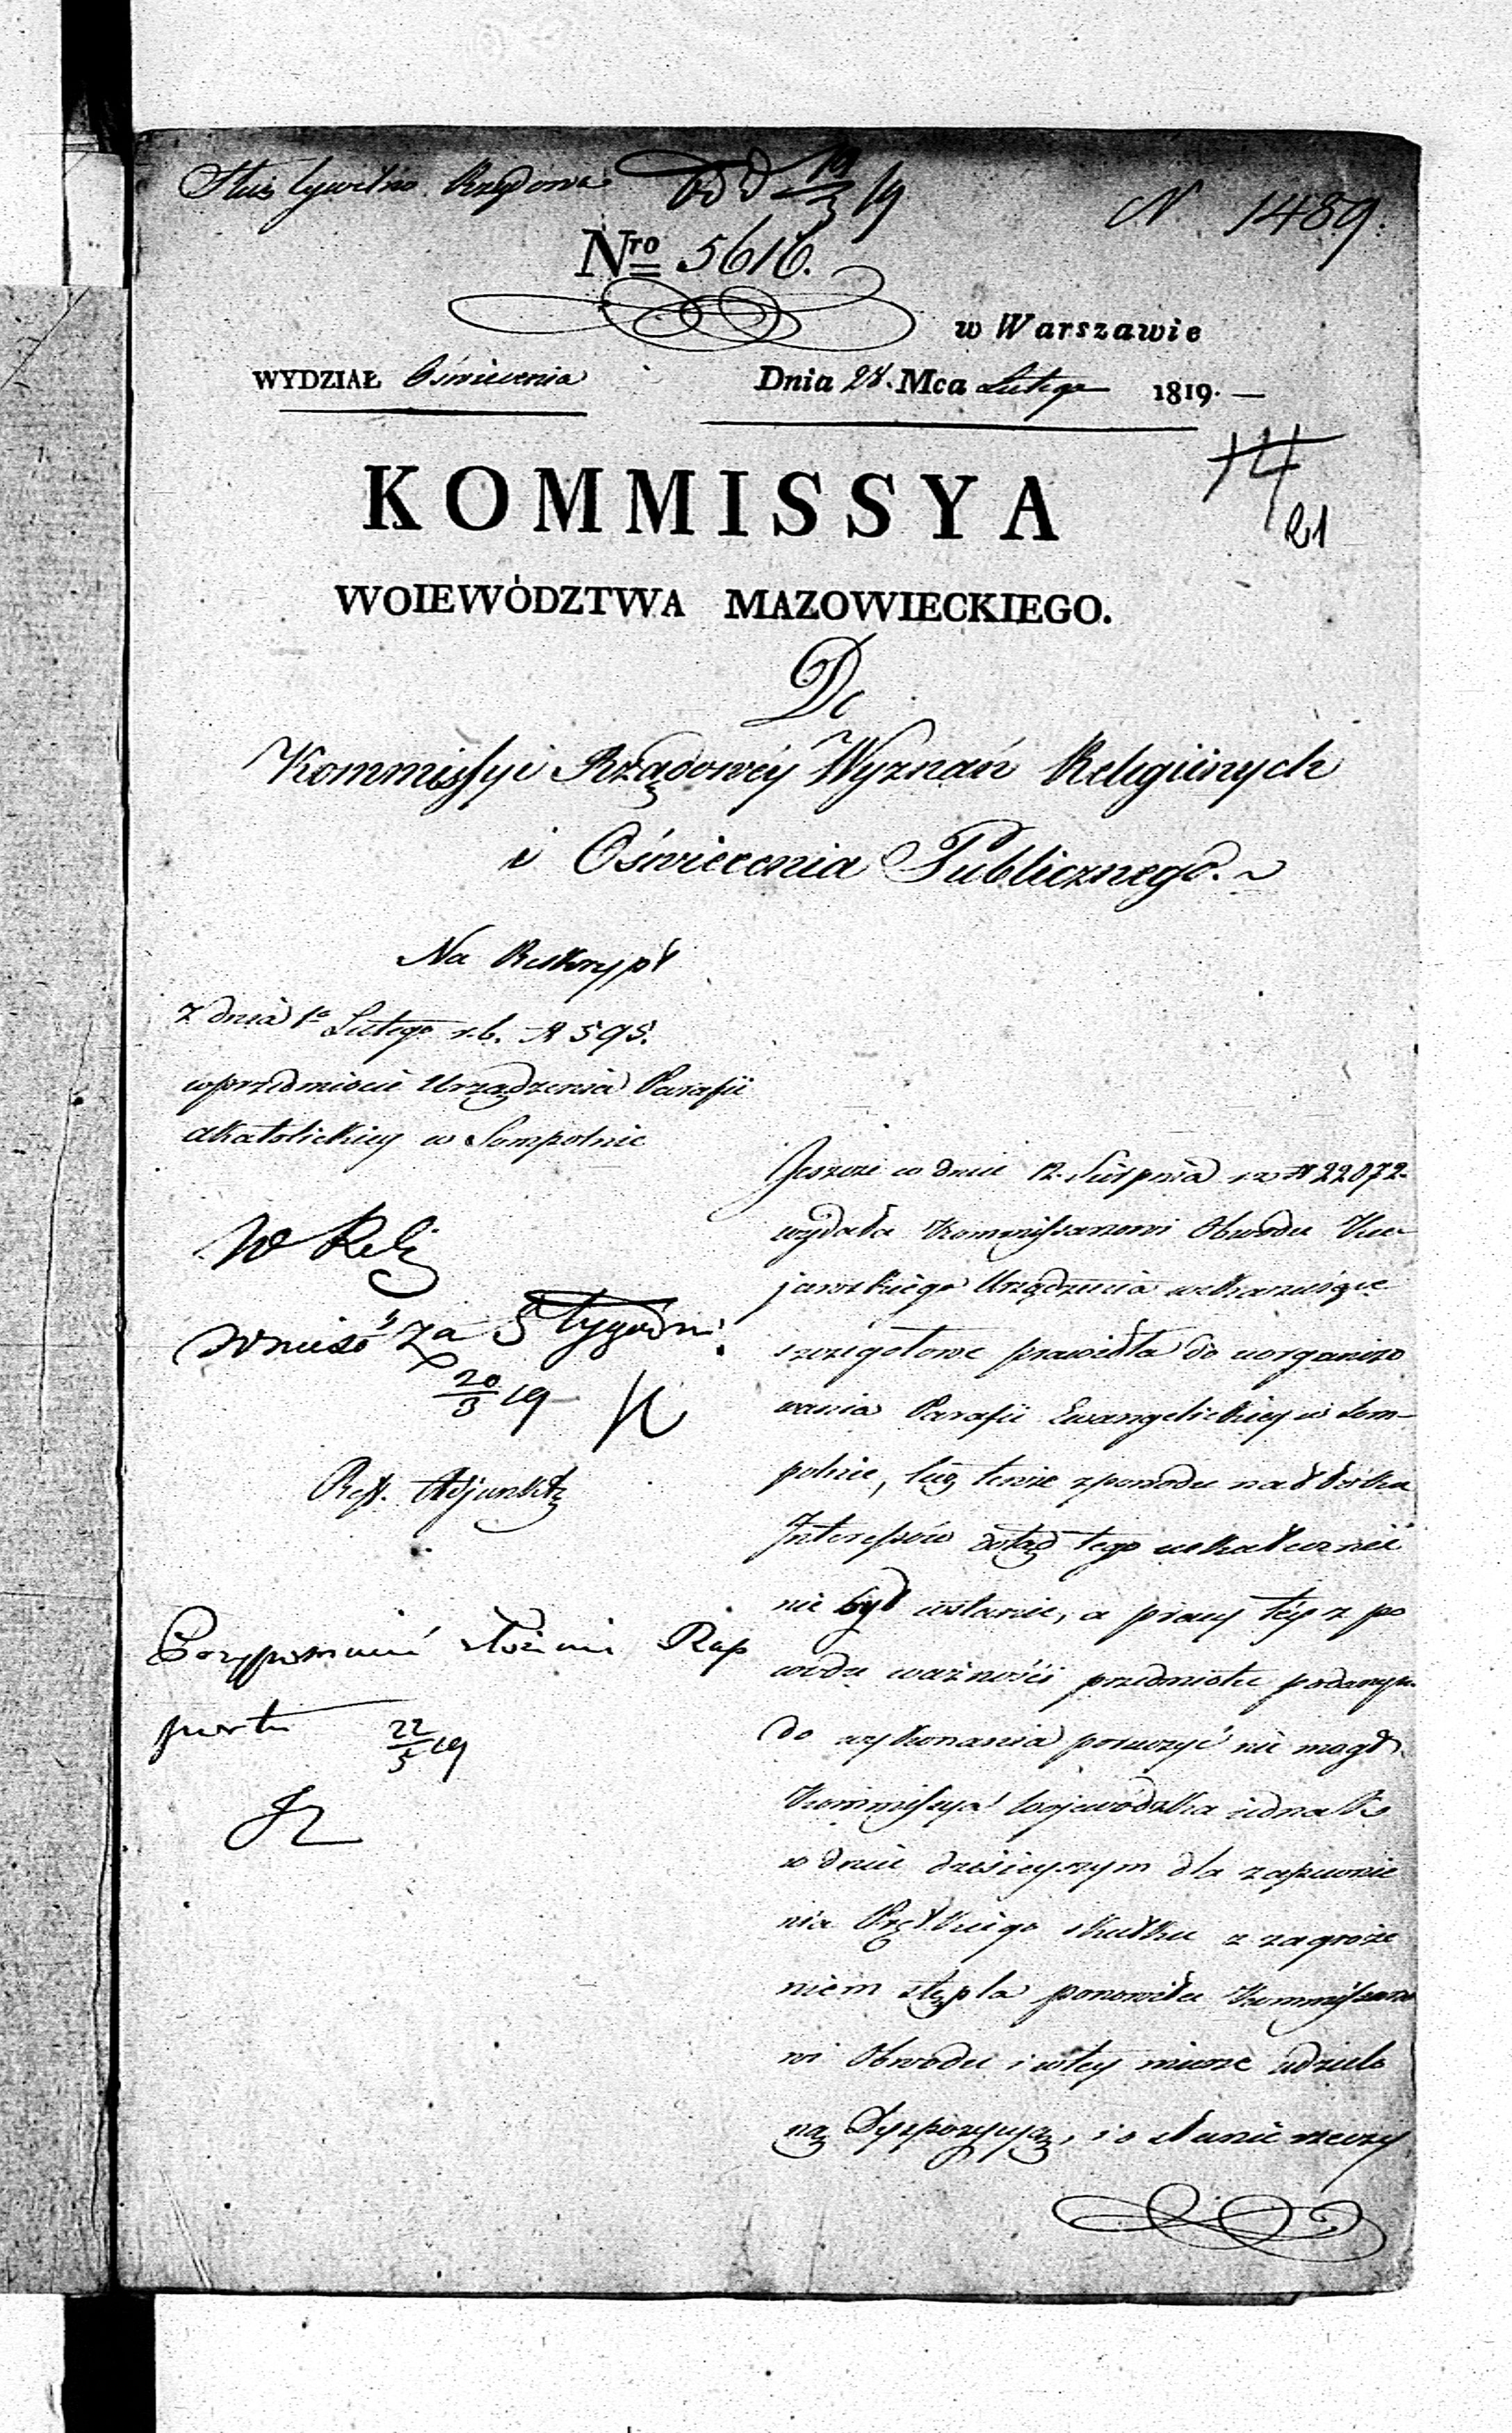 Służ. Cywilno Rządowa
Odd 19/3 19
N 1489.
Nro 5616.
w Warszawie
WYDZIAŁ Oświecenia
Dnia 28. Mca Lutego 1819. —
14
21
KOMMISSYA
WOIEWÓDZTWA MAZOWIECKIEGO.
Do
Kommissyi Rządowéy Wyznań Religiinych
i Oświecenia Publicznego.
Na Reskrypt
z dnia 1o Lutego r.b. N 595.
w przedmiocie Urządzenia Parafii
akatolickiey w Sompolnie
W Reli
wnieść za 5 tygodni
20/3 19
Ref. Adjunkt
Przypomnieć złożenie Rap
portu
22/5 19
Jeszcze w dniu 12. Sierpnia N 22072.
wydała Kommissarzowi Obwodu Ku-
jawskiego Urządzenia wskazuiące
szczegółowe prawidła do uorganizo
wania Parafii Ewangelickiey w Som-
polnie, lecz tenże z powodu natłoku
Interessów dotąd tego uskutecznić
nie był wstanie, a pracy téy z po
wodu ważności przedmiotu podanym
do wykonania poruczyć nie mógł.
Kommissya Wojewódzka jednak
w dniu dzisieyszym dla zapewnie
nia prędkiego skutku z zagroże
niem stępla ponowiła Kommissarzo
wi Obwodu i w tey mierze udzielo
ną Dyspozycyą, i o stanie rzeczy